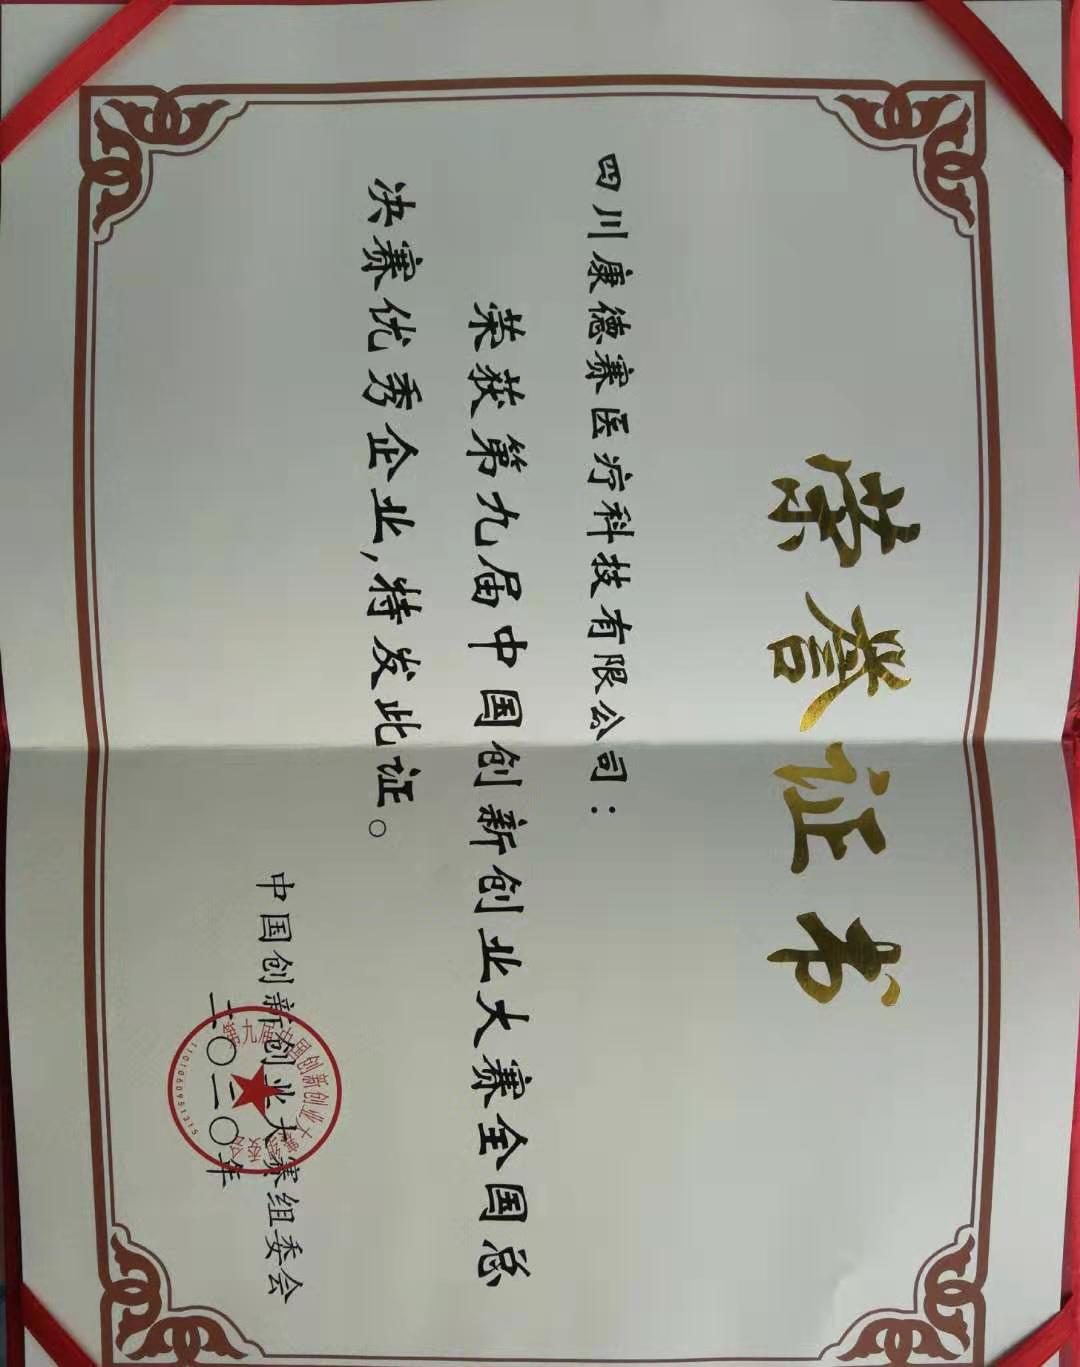 荣誉证书
四川康德赛医疗科技有限公司：
荣获第九届中国创新创业大赛全国总
决赛优秀企业,特发此证。
中国创新创业大赛组委会
二〇二〇年
第九届中国创新创业大赛组委会
1101060951315